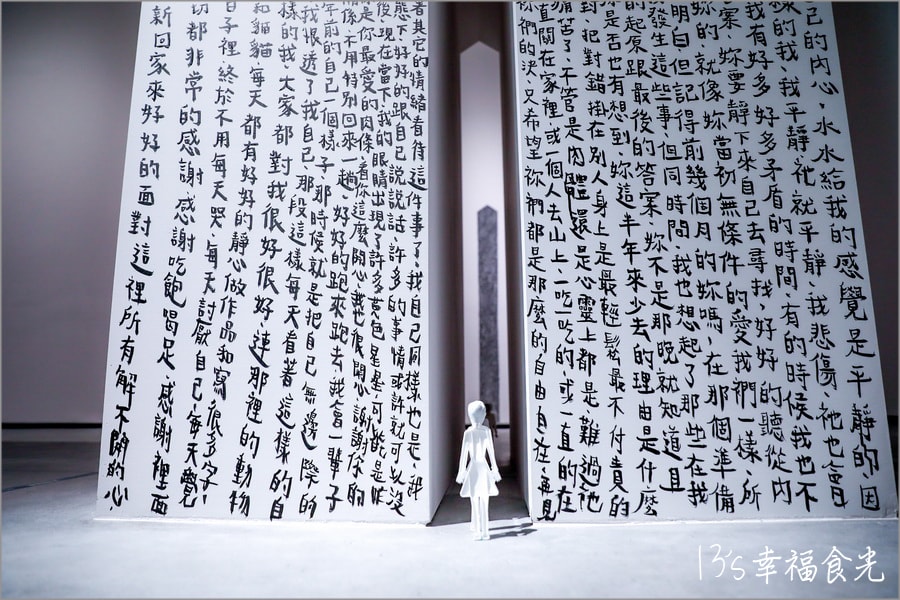 己的內心,水水給我的感覺是平靜的,因
樣的我,我平靜,祂就平靜,我悲傷,祂也會
我有好多好多矛盾的時間,有的時候我也不
案,妳要靜下來自己去尋找,好好的聽從內
妳的,就像妳當初無條件的愛我們一樣,所
明白,但記得前幾個月的妳嗎,在那個準備
發生這些事,但同時間,我也想起了那些在我
的起原跟最後的答案,妳不是那晚就知道且
是否也有想到妳這半年來少去的理由是什麼
對,把對錯掛在別人身上是最輕鬆最不付責人的
痛苦了,不管是肉體還是心靈上都是,難過他
直關在家裡,或個人去山上,一吃一吃的,或一直的在
們的決,又希望祢們都是那麼的自由自在,竟見
著其它的情緒看待這件事了,我自己同樣也是,那
態下,好好的跟自己說說話,許多的事情或許就可以沒
後現在當下,我的眼睛出現了許多色星星,可能是
是你最愛的肉條,看你這麼開心,我也很開心,謝謝你的
關係,不用特別回來一趟,好好的跑來跑去,我會一輩子
年前的自己一個樣子,那時候就是把自己無邊際的
我恨透了我自己,那段這樣每天看著這樣的自
樣的我,大家都對我很好很好,連那裡的動物
和貓貓,每天都有好好的靜心做作品和寫很多字,
日子裡,終於不用每天哭,每天討厭自己,每天覺
切都非常的感謝,感謝吃飽喝足,感謝裡面
新回家來好好的面對這裡所有解不開的心
13's幸福食光